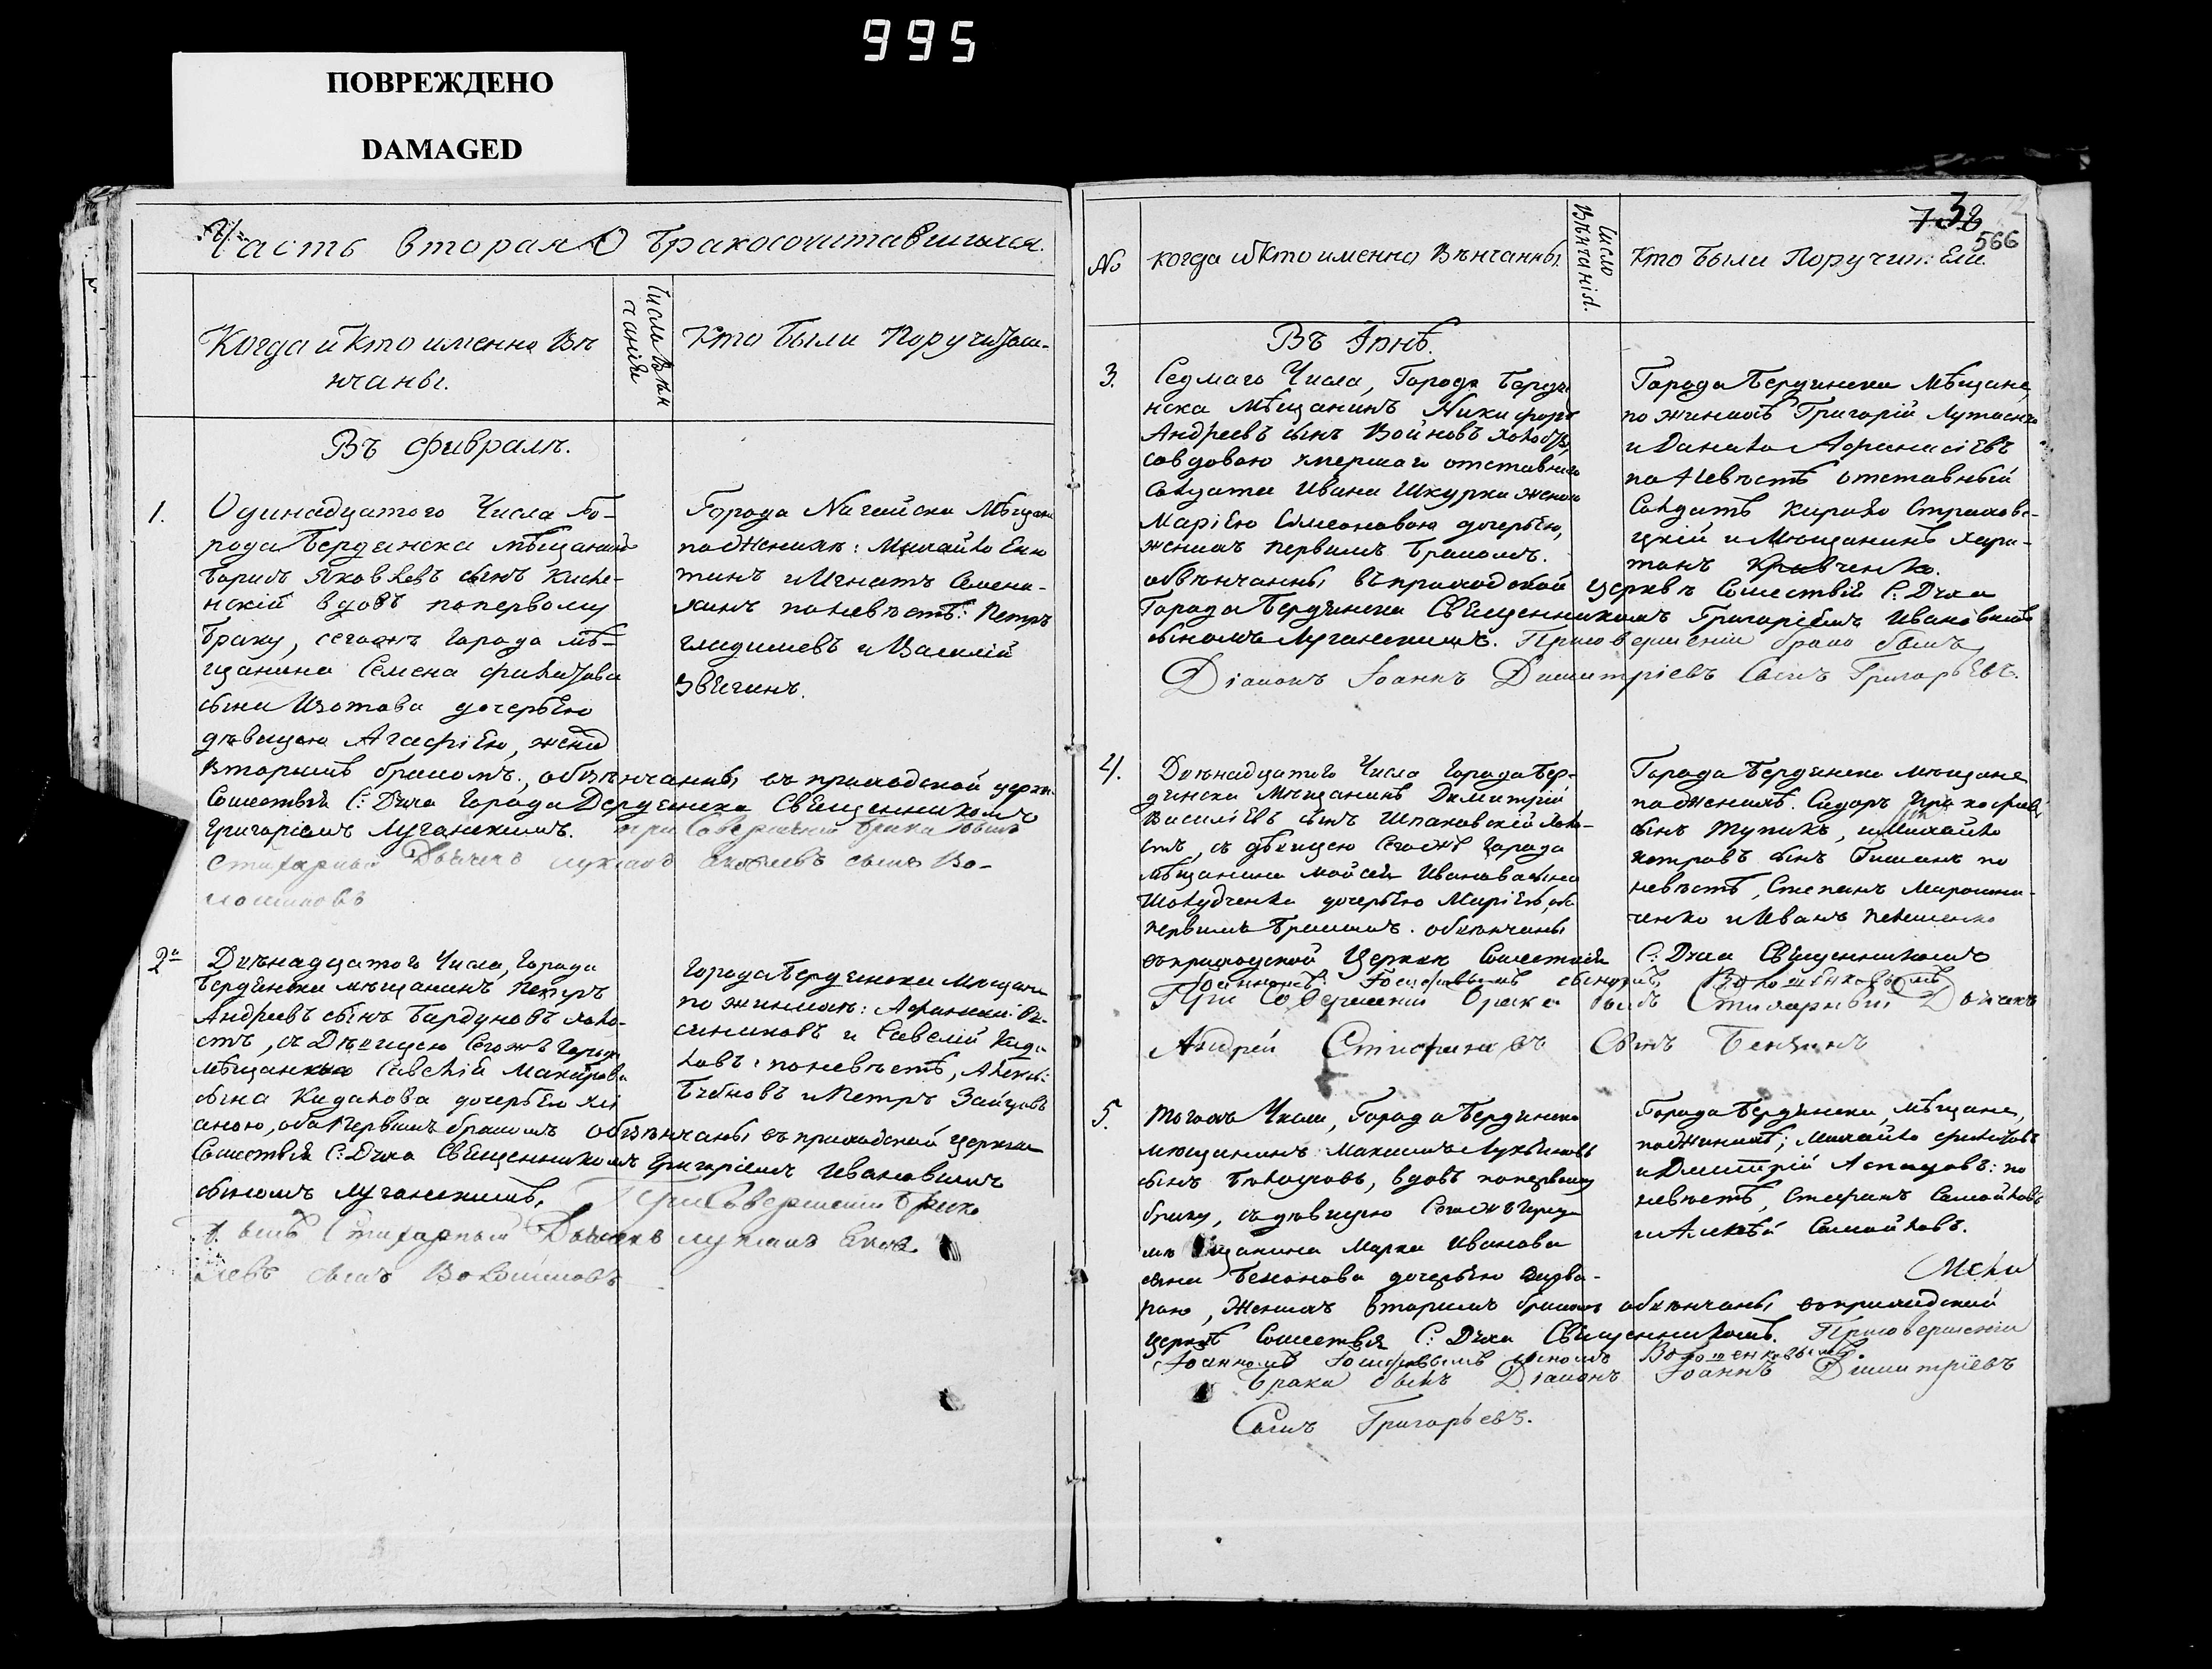 995
ПОВРЕЖДЕНО
DAMAGED
Часть вторая О бракосочитавшихся.
Когда и кто именно Вѣ
нчаны.
Число Вѣн
чанія
Кто были Поручители
Въ Февралѣ.
1.
Одинадцатого Числа Го-
рода Бердянска мѣщанинъ
Яковлевъ сынъ
вдовъ попервому
браку, сегожъ города мѣ-
щанина Семена Филатова
сына Изотова дочерью
дѣвицею Агафіею, женихъ
вторымъ бракомъ, обвѣнчанны въ приходской церкви
Сошествія С: Духа города Бердянска Священникомъ
Григоріемъ Луганскимъ. при Совершеніи брака былъ
Стихарный Дьячекъ Лукіанъ Яковлевъ сынъ Во-
лошиновъ
Города Нагайска Мѣщане
по Женихѣ: Михайло
и Игнатъ
по невѣстѣ: Петръ
и Василій
Звѣгинъ.
2й
Двѣнадцатого Числа, Города
Бердянска мѣщанинъ Петръ
Андреевъ сынъ Бардуновъ холо-
стъ, съ Дѣвицею Сегожъ Города
мѣщанина Савелія Макарова
сына Кидалова дочерью Улі
аною, оба Первымъ бракомъ обвѣнчаны въ приходской церкви
Сошествія С: Духа Священникомъ Григоріемъ Ивановымъ
сыномъ Луганскимъ, При Совершеніи брака
былъ Стихарный Дьячекъ Лукіанъ Яков
левъ сынъ Волошиновъ
Города Бердянска Мѣщане
по женихѣ: Афанасій
и Савелій Кида
ловъ: по невѣстѣ,
и Петръ Зайцовъ
3
738
566
No
когда и Кто именно Вѣнчанны.
Число
Вѣнчанія.
Кто были Поручители.
Въ Іюнѣ.
3.
Седмаго Числа, Города Бердя
нска Мѣщанинъ Никифоръ
Андреевъ сынъ Войновъ холостъ,
со вдовою умершаго отставнаго
Солдата Ивана Шкурки женою
Маріею Симеоновою дочерью,
женихъ первымъ бракомъ.
обвѣнчанны въ приходской церквѣ Сошествія С: Духа
Города Бердянска Священникомъ Григоріемъ Ивановымъ
сыномъ Луганскимъ. При совершеніи брака былъ
Діаконъ Іоаннъ Димитріевъ Сынъ Григорьевъ.
Города Бердянска Мѣщане,
по женихѣ Григорій
и Данило Афанасіевъ
по Невѣстѣ отставный
Солдатъ Кирило Страхове-
цкій и Мѣщанинъ Хари-
тонъ Кравченко.
4.
Двѣнадцатого Числа Города Бер-
дянска Мѣщанинъ Димитрій
Василіевъ сынъ Шпаковскій холо-
стъ, съ дѣвицею Сегожъ города
мѣщанина Мойсея Иванова сына
дочерью Маріею, оба
первымъ бракомъ. обвѣнчаны
въ приходской Церкви Сошествія С: Духа Священникомъ
Іоанномъ Іосифовымъ сыномъ Волошенковымъ
При Совершеніи брака былъ Стихарный Дьячекъ
Андрей Стефановъ Сынъ Бензинъ
Города Бердянска мѣщане
по Женихѣ. Сидоръ Прокофіевъ
сынъ Тупикъ, и Михайло
Петровъ сынъ по
невѣстѣ, Степанъ Мирошни-
ченко и Иванъ
5.
Того жъ Числа, Города Бердянска
мѣщанинъ Максимъ Лукьяновъ
сынъ вдовъ попервому
браку, съ дѣвицею Сегожъ города
мѣщанина Марка Иванова
сына дочерью Варва-
рою, Женихъ вторымъ бракомъ обвѣнчаны въ приходской
церквѣ Сошествія С: Духа Священникомъ. При совершеніи
Іоанномъ Іосифовымъ сыномъ Волошенковымъ
брака былъ Діаконъ Іоаннъ Димитріевъ
Сынъ Григорьевъ.
Города Бердянска, мѣщане,
по Женихѣ; Михайло
и Дмитрій по
невѣстѣ, Стефанъ Самойловъ
и Алексѣй Самойловъ.